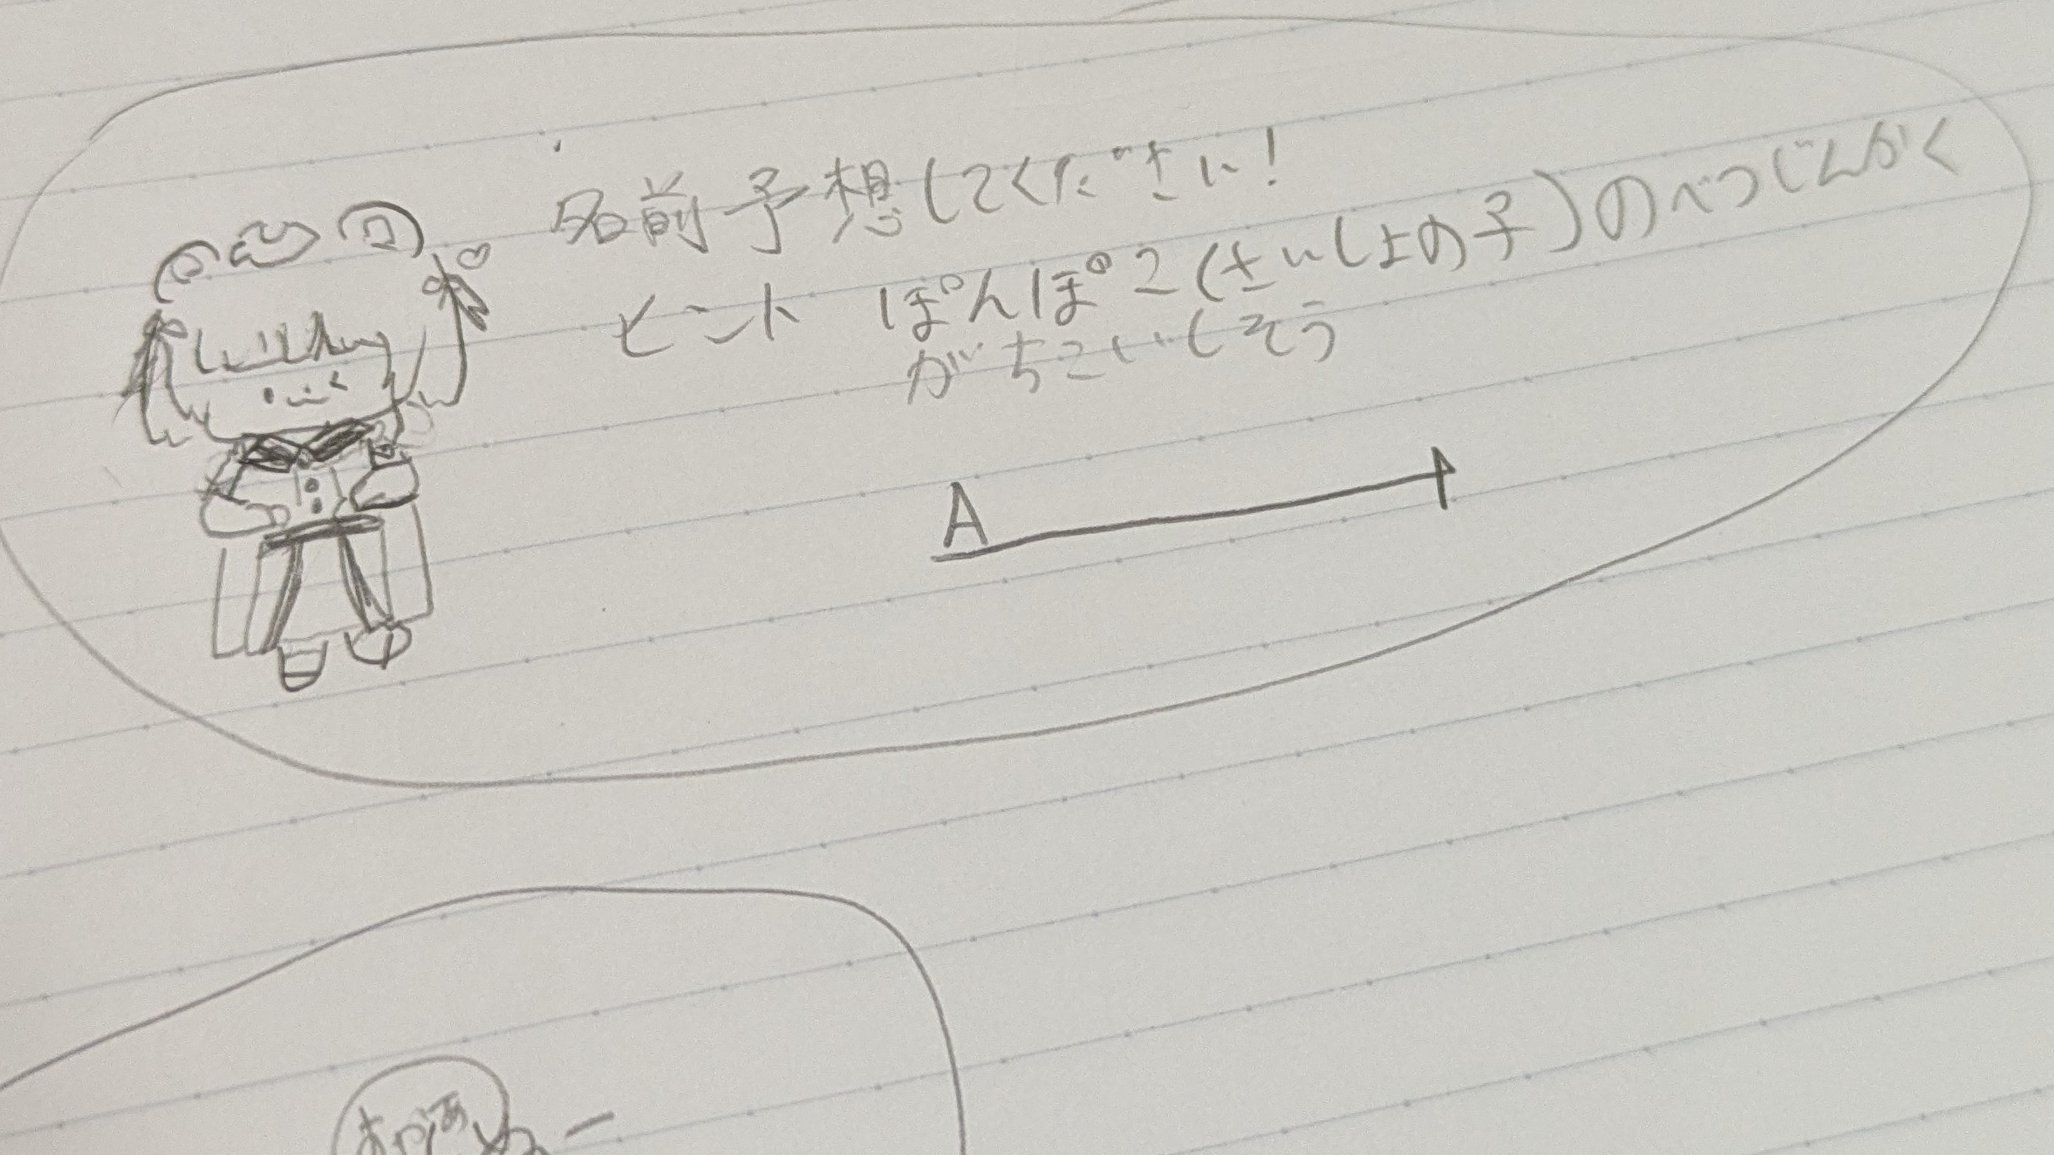 名前予想してください!
ヒント ぽんぽこ(さいしょの子)のべつじんかく
がちこいしそう
A